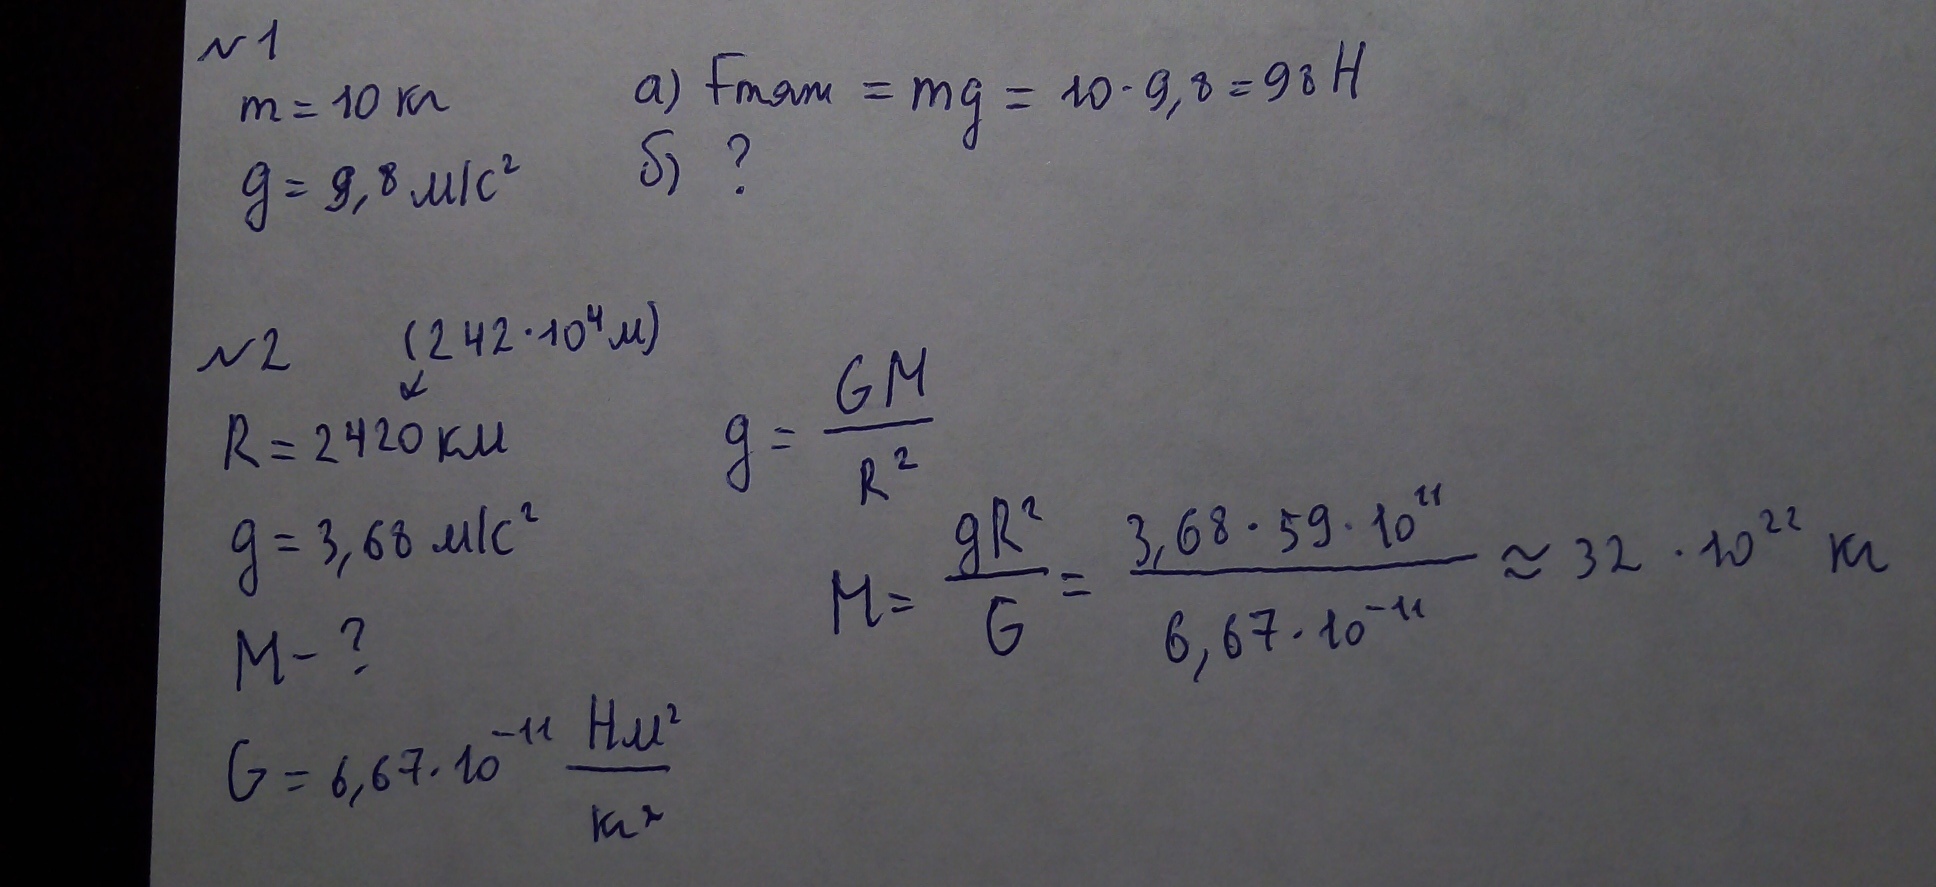 №1
m = 10 кг
g = 9,8 м/с²
а) Fтяж = mg = 10 · 9,8 = 98 Н
б) ?
№2
(242 · 10⁴ м)
R = 2420 км
g = 3,68 м/с²
M - ?
G = 6,67 · 10⁻¹¹ Нм²/кг²
g = GM/R²
M = gR²/G = 3,68 · 59 · 10¹¹/6,67 · 10⁻¹¹ ≈ 32 · 10²² кг